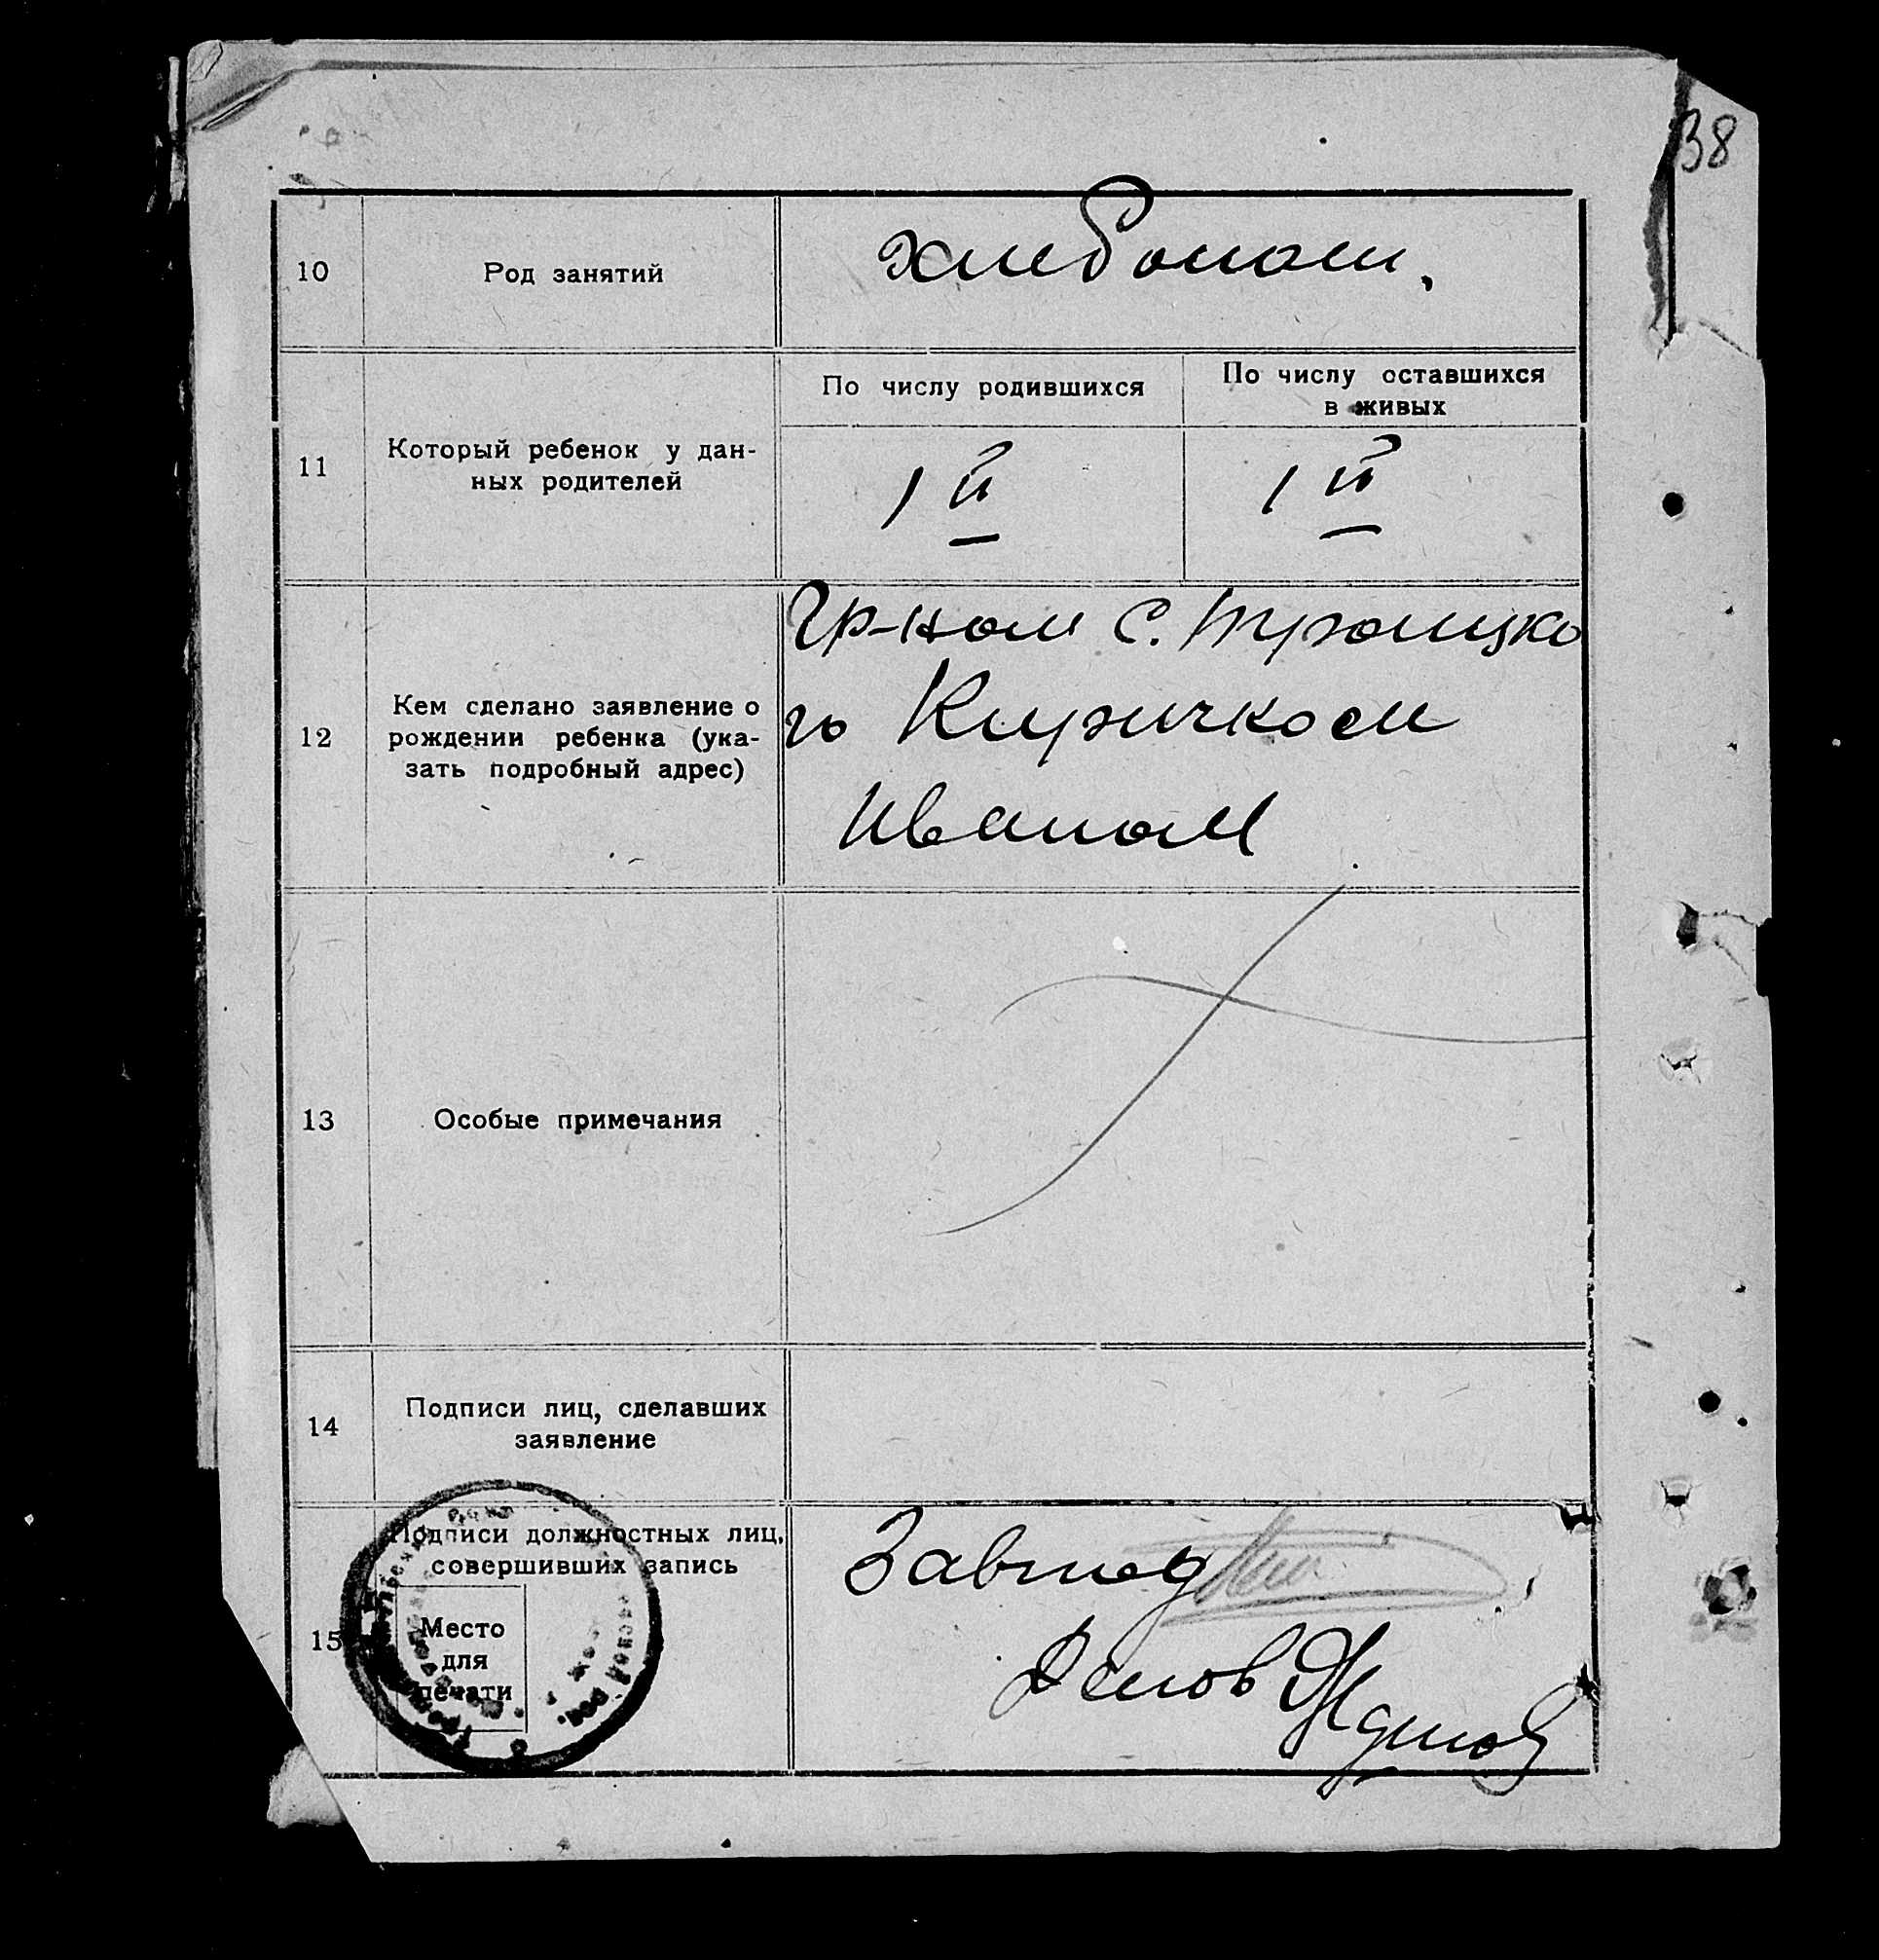 38
10 Род занятий хлебопаш.
По числу родившихся По числу оставшихся
в живых
11 Который ребенок у дан-
ных родителей
1й 1й
Гр-ном с. Троицко
12 Кем сделано заявление о
рождении ребенка (ука-
зать подробный адрес)
го Киричком
Иваном
13 Особые примечания
14 Подписи лиц, сделавших
заявление
15 Подписи должностных лиц,
совершивших запись
Завстод
Место
для
печати
Делов